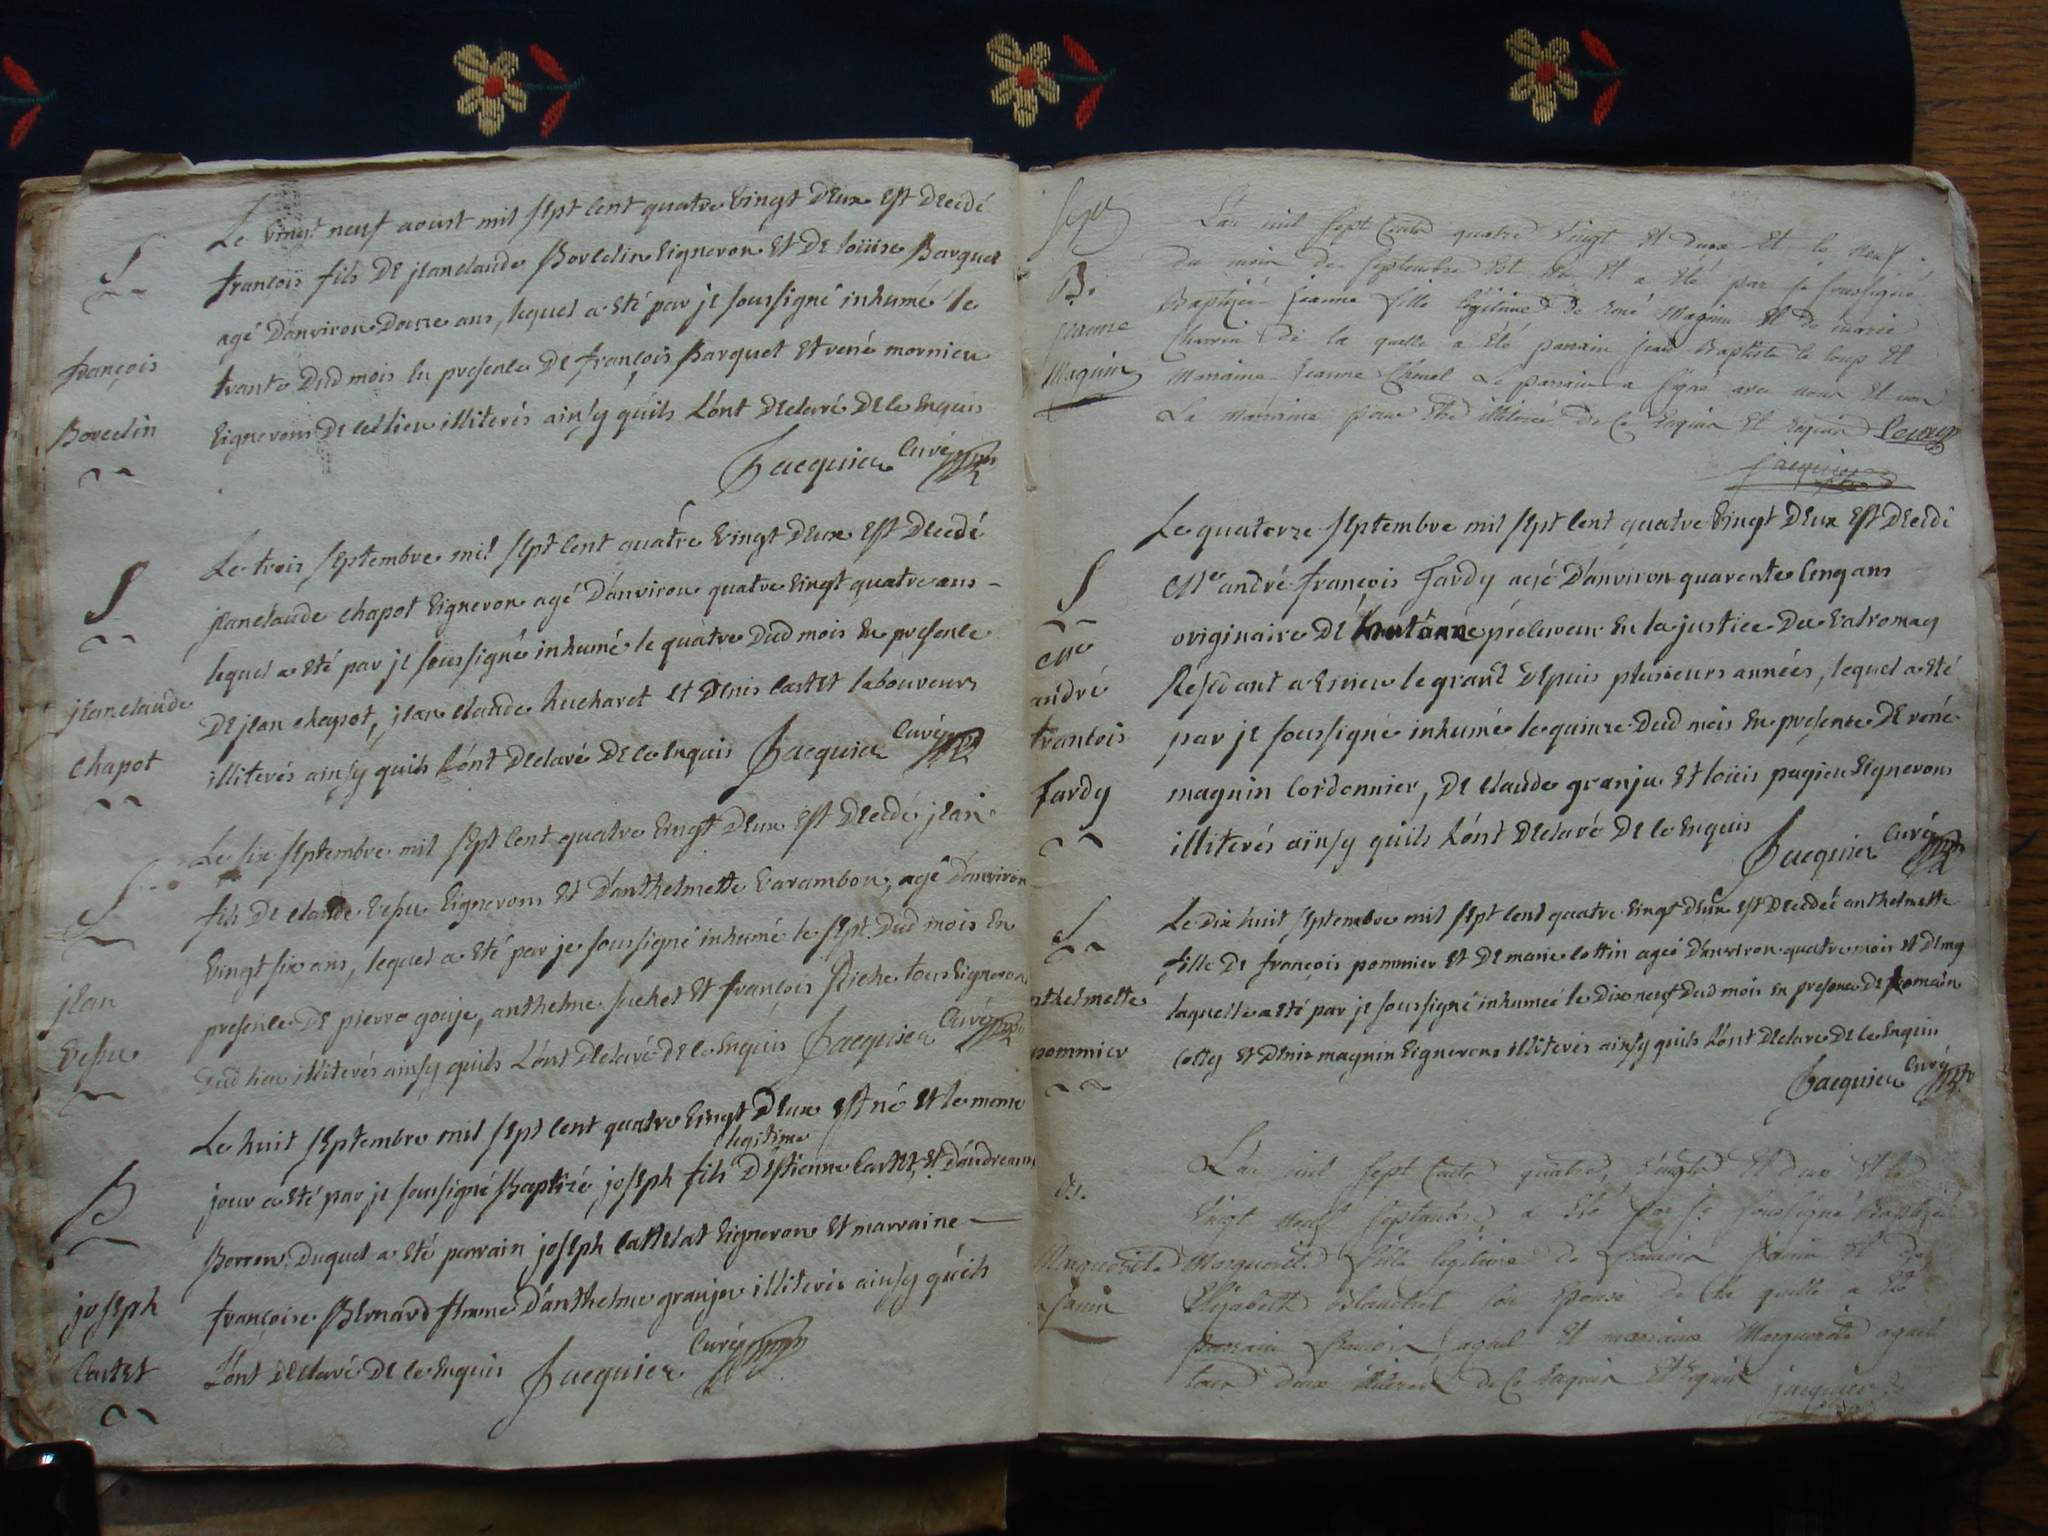 S
françois
Bovelin
Le vingt neuf aoust mil sept cent quatre vingt deux est decidé
françois fils de jeanclaude Bovelin vigneron et de loüise Barquet
agé d'anviron douze ans, lequel a eté par je soussigné inhumé le
trante dud mois en presence de françois Barquet et rené mornieu
vignerons de cet lieu illiterés ainsy qu'ils l'ont declaré de ce enquis
Jacquier Curé
S
jeanclaude
chapot
Le trois septembre mil sept cent quatre vingt deux est decedé
jeanclaude chapot vigneron agé d'anviron quatre vingt quatre ans
lequel a eté par je soussigné inhumé le quatre dud mois en presence
de jean chapot, jean claude hucharet et denis castet laboureurs
illiterés ainsy quils l'ont declaré de ce enquis Jacquier Curé
S
jean
vesu
Le six septembre mil sept cent quatre vingt deux est decedé jean
fils de claude vesu vignerons et d'anthelmette varambon, agé d'anviron
vingt six ans, lequel a eté par je soussigné inhumé le sept dud mois en
presence de pierre gouje, anthelme suchet et françois Riche tous vignerons
dud lieu illiterés ainsy quils l'ont declaré de ce enquis Jacquier Curé
B
joseph
Cartet
Le huit septembre mil sept cent quatre vingt deux est né et le meme
jour a eté par je soussigné Baptizé joseph fils legitime d'Estienne Cartet, et d'andreanne
Borren duquel a eté parrain joseph Cattelat vigneron et marraine
françoise Bernard femme d'anthelme granjea illiterés ainsy qu'ils
l'ont declaré de ce enquis Jacquier Curé
B.
jeanne
Maguin
L'an mil sept cents quatre vingt et deux et le neuf
du mois de septembre est née et a eté par je soussigné
Baptizée jeanne fille légitime de rené Maguin et de marie
de la quelle a été parrain jean Baptiste le loup et
Marraine jeanne le parrain a signé avec nous et non
La marraine pour etre illiterée de ce enquise et requise Leloup
jacquier
S
Me
andré
françois
fardy
Le quatorze septembre mil sept cent quatre vingt deux est decidé
Me andré françois fardy agé d'anviron quarente cinq ans
originaire de procureur en la justice du valromay
Résidant a virieu le grand depuis plusieurs années, lequel a eté
par je soussigné inhumé le quinze dud mois en presence de rené
magnin Cordonnier, de claude granju et loüis pugieu vignerons
illiterés ainsy quils l'ont declaré de ce enquis
Jacquier Curé
S
nthelmette
pommier
Le dix huit septembre mil sept cent quatre vingt deux est decedée anthelmette
fille de françois pommier et de marie cottin ageé d'anviron quatre mois et demy
laquelle a eté par je soussigné inhumeé le dix neuf dud mois en presence de Romain
Cotty et denis magnin vignerons illiterés ainsy quils l'ont declare de ce enquis
Jacquier Curé
B.
Marguerite
Janin
L'an mil sept cents quatre vingts et deux et le
vingt neuf septembre a été par je soussigné Baptizée
Marguerite fille légitime de francois Janin et de
Elizabeth son Epouse de la quelle a été
parrain francois et marraine Marguerite
tous deux illiterés de ce enquis et requis jacquier